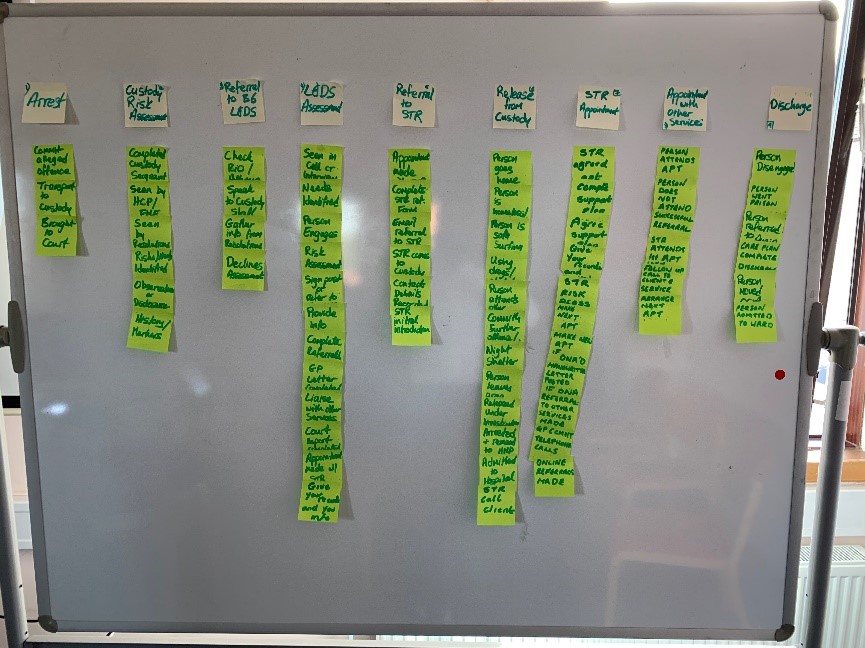 Arrest
Custody
Risk
Assessment
Referral
to B6
L&DS
L&DS
Assessment
Referral
to
STR
Release
from
Custody
STR
Appointment
Appointment
with
other
Services
Discharge
Commit
alleged
offence
Transport
to
Custody
Brought
to
Court
Completed
Custody
Sergeant
Seen by
HCP/
Seen
by
Risks/Needs
Identified
Observation
or
Disclosure
History/
Markers
Check
RiO/
Speak
to Custody
Staff
Gather
info from
Declines
Assessment
Seen in
Cell or
Interview
Needs
Identified
Person
Engages
Risk
Assessment
Sign post
or
refer to
Provide
info
Complete
Referrals
GP
Letter
Completed
Liaise
with other
Services
Court
report
completed
Appointment
made w/
STR
Give
your
and you
info
Appointment
made
Complete
STR ref
Form
Email
referral
to STR
STR comes
to
custody
Contact
Details
Recorded
STR
initial
introduction
Person
goes
home
Person
is
homeless/
Person is
sofa
Surfing
Using
drugs/
Person
attends
other
Commits
further
offence/
Night
Shelter
Person
leaves
area
Released
Under
Investigation
Arrested
+ Remand
to HMP
Admitted
to
Hospital
STR
call
client
STR
agreed
not
complete
support
plan
Agree
support
plan
Give
your
and
STR
RISK
ASSESS
MAKE
NEXT
APT
MAKE NEW
APT
IF
DNA'D
HANDWRITTEN
LETTER
POSTED
IF DNA
REFERRAL
TO OTHER
SERVICES
MADE
TELEPHONE
CALLS
ONLINE
REFERRALS
MADE
PERSON
ATTENDS
APT
PERSON
DOES
NOT
ATTEND
SUCCESSFUL
REFERRAL
STR
ATTENDS
1st APT
FOLLOW UP
CALL TO
CLIENT &
SERVICE
ARRANGE
NEXT
APT
Person
Disengaged
PERSON
WENT
PRISON
Person
Referred
to
CARE PLAN
COMPLETE
Person
Moved
PERSON
ADMITTED
TO WARD